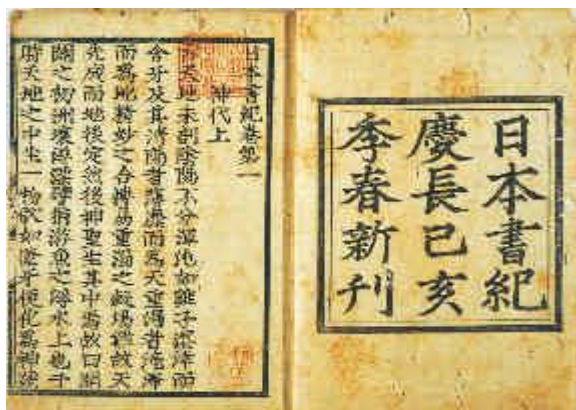 日本書紀
慶長己亥
季春新刊
日本書紀卷第一
神代上
天地未剖陰陽不分渾沌如雞子溟涬而
含牙及其清陽者薄靡而爲天重濁者淹滯
而爲地精妙之合搏易重濁之凝場難故天
先成而地後定然後神聖生其中焉故曰開
闢之初洲壤浮漂譬猶游魚之浮水上也于
時天地之中生一物狀如葦牙便化爲神